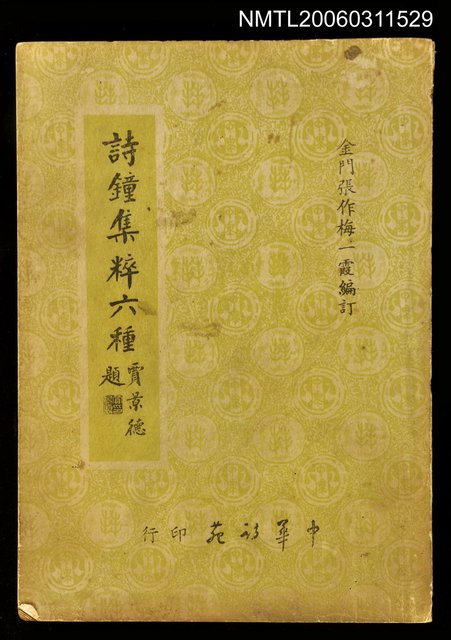 NMTL20060311529
金門張作梅一霞編訂
詩鐘集粹六種
賈景德
題
中華詩苑印行